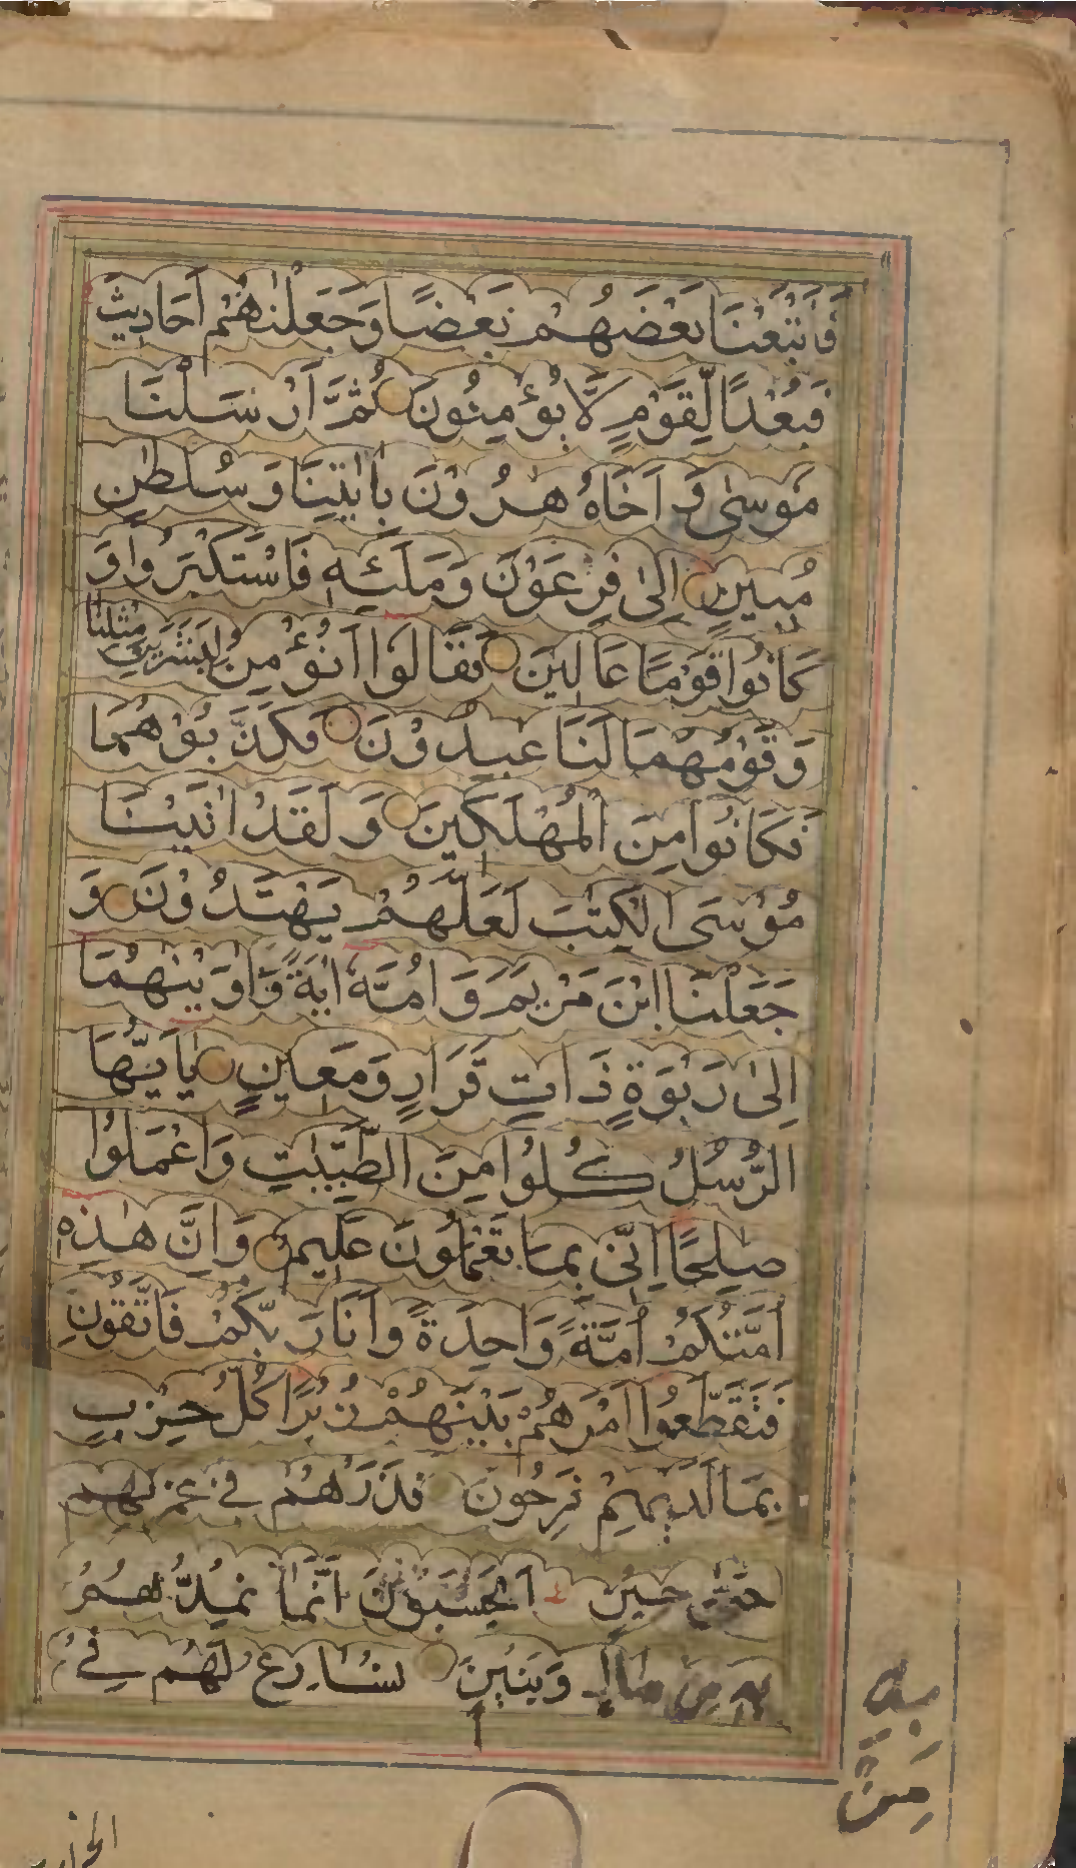 فَاَتْبَعْنَا بَعْضَهُمْ بَعْضًا وَّجَعَلْنٰهُمْ اَحَادِيْثَ
فَبُعْدًا لِّقَوْمٍ لَّا يُؤْمِنُوْنَ ثُمَّ اَرْسَلْنَا
مُوْسٰى وَ اَخَاهُ هٰرُوْنَ بِاٰيٰتِنَا وَ سُلْطٰنٍ
مُّبِيْنٍ اِلٰى فِرْعَوْنَ وَمَلَئِهٖ فَاسْتَكْبَرُوْا وَ
كَانُوْا قَوْمًا عَالِيْنَ فَقَالُوْا اَنُؤْمِنُ لِبَشَرَيْنِ مِثْلِنَا
وَقَوْمُهُمَا لَنَا عٰبِدُوْنَ فَكَذَّبُوْهُمَا
فَكَانُوْا مِنَ الْمُهْلَكِيْنَ وَ لَقَدْ اٰتَيْنَا
مُوْسَى الْكِتٰبَ لَعَلَّهُمْ يَهْتَدُوْنَ وَ
جَعَلْنَا ابْنَ مَرْيَمَ وَ اُمَّهٗ اٰيَةً وَّاٰوَيْنٰهُمَا
اِلٰى رَبْوَةٍ ذَاتِ قَرَارٍ وَّمَعِيْنٍ يٰاَيُّهَا
الرُّسُلُ كُلُوْا مِنَ الطَّيِّبٰتِ وَاعْمَلُوْا
صَالِحًا اِنِّيْ بِمَا تَعْمَلُوْنَ عَلِيْمٌ وَاِنَّ هٰذِهٖ
اُمَّتُكُمْ اُمَّةً وَّاحِدَةً وَّاَنَا رَبُّكُمْ فَاتَّقُوْنِ
فَتَقَطَّعُوْا اَمْرَهُمْ بَيْنَهُمْ زُبُرًا كُلُّ حِزْبٍ
بِمَا لَدَيْهِمْ فَرِحُوْنَ فَذَرْهُمْ فِيْ غَمْرَتِهِمْ
حَتّٰى حِيْنٍ اَيَحْسَبُوْنَ اَنَّمَا نُمِدُّهُمْ
بِهٖ مِنْ مَّالٍ وَّبَنِيْنَ نُسَارِعُ لَهُمْ فِي
بِهٖ
مِنْ